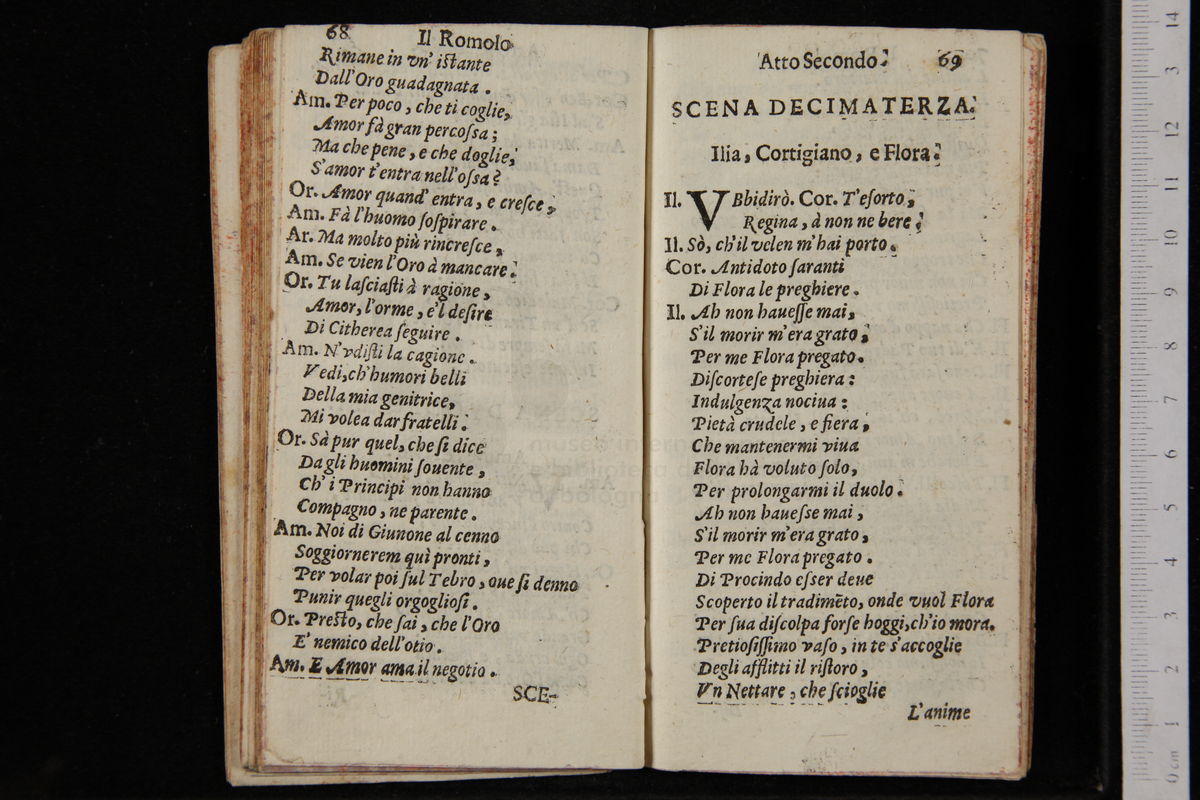 68 Il Romolo
Rimane in vn' istante
Dall'Oro guadagnata.
Am. Per poco, che ti coglie,
Amor fà gran percossa;
Ma che pene, e che doglie,
S'amor t'entra nell'ossa?
Or. Amor quand' entra, e cresce,
Am. Fà l'huomo sospirare.
Ar. Ma molto più rincresce,
Am. Se vien l'Oro à mancare.
Or. Tu lasciasti à ragione,
Amor, l'orme, e'l desire
Di Citherea seguire.
Am. N'vdisti la cagione.
Vedi, ch'humori belli
Della mia genitrice,
Mi volea dar fratelli.
Or. Sà pur quel, che si dice
Dagli huomini souente,
Ch' i Principi non hanno
Compagno, ne parente.
Am. Noi di Giunone al cenno
Soggiornerem quì pronti,
Per volar poi sul Tebro, oue si denno
Punir quegli orgogliosi.
Or. Presto, che sai, che l'Oro
E' nemico dell'otio.
Am. E Amor ama il negotio.
SCE-
Atto Secondo. 69
SCENA DECIMATERZA.
Ilia, Cortigiano, e Flora.
Il. VBbidirò. Cor. T'esorto,
Regina, à non ne bere;
Il. Sò, ch'il velen m'hai porto.
Cor. Antidoto saranti
Di Flora le preghiere.
Il. Ah non hauesse mai,
S'il morir m'era grato,
Per me Flora pregato.
Discortese preghiera:
Indulgenza nociua:
Pietà crudele, e fiera,
Che mantenermi viua
Flora hà voluto solo,
Per prolongarmi il duolo.
Ah non hauesse mai,
S'il morir m'era grato,
Per me Flora pregato.
Di Procindo esser deue
Scoperto il tradimẽto, onde vuol Flora
Per sua discolpa forse hoggi, ch'io mora.
Pretiosissimo vaso, in te s'accoglie
Degli afflitti il ristoro,
Vn Nettare, che scioglie
L'anime